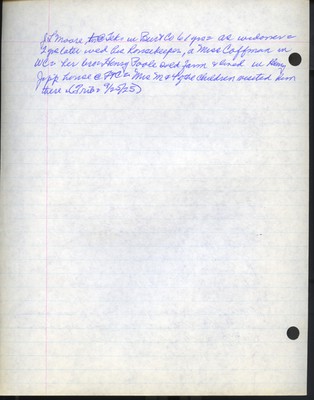 St Moore, in Burt Co 61 yrs as widower &
2 yrs later wed his housekeeper, a Miss Coffman in
WC & her bro Henry Poole owd farm & lived in Henry
Japp house @ & Mrs M & 4 of the children visited him
there (Trib 9/25/25)